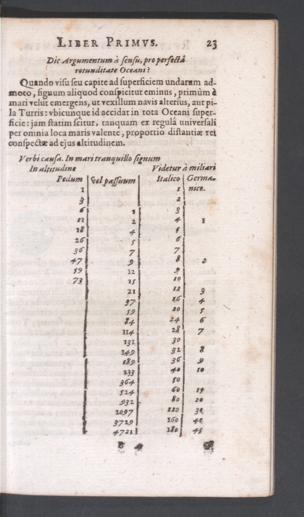 LIBER PRIMUS. 23
Dic Argumentum à sensu, pro perfectâ
rotunditate Oceani?
Quando visu seu capite ad superficiem undarum ad-
moto, signum aliquod conspicitur eminus, primùm è
mari velut emergens, ut vexillum navis alterius, aut pi-
la Turris: ubicunque id accidat in tota Oceani super-
ficie: jam statim scitur, tanquam ex regulâ universali
per omnia loca maris valente, proportio distantiæ rei
conspectæ ad ejus altitudinem.
Verbi causa. In mari tranquillo signum
In altitudine Videtur à miliari
Pedum Vel passuum Italico Germa-
1 1 nico.
3 2
6 1 3
12 2 4 1
18 4 5
26 5 6
36 7 7
47 9 8 2
59 12 9
73 15 10
21 12 3
37 16 4
59 20 5
84 24 6
114 28 7
131 30
149 32 8
189 36 9
233 40 10
364 50
524 60 15
932 80 20
2097 120 30
3729 160 40
4721 180 45